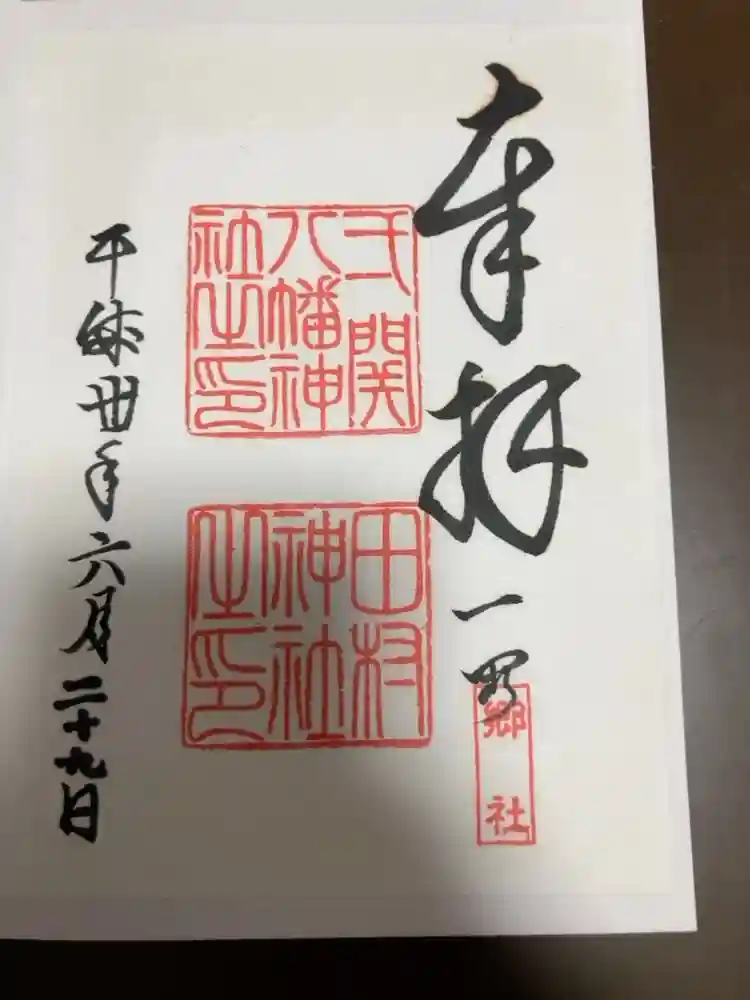 奉拝
一関
郷社
弌関
八幡神
社之印
田村
神社
之印
平成丗年六月二十九日